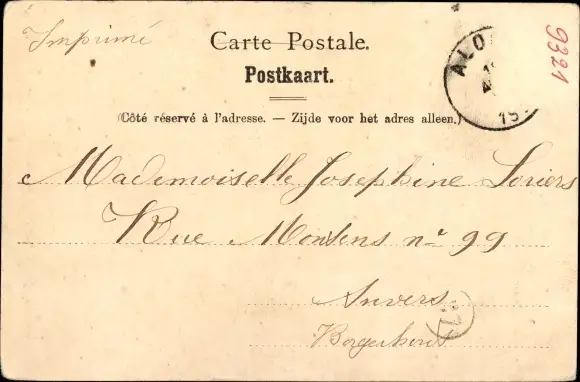 Imprimé
Carte Postale.
9321
Postkaart.
ALO
(Côté réservé à l'adresse. — Zijde voor het adres alleen.)
Mademoiselle Josephine Soriers
Rue Montens nº 99
Anvers
Borgerhout